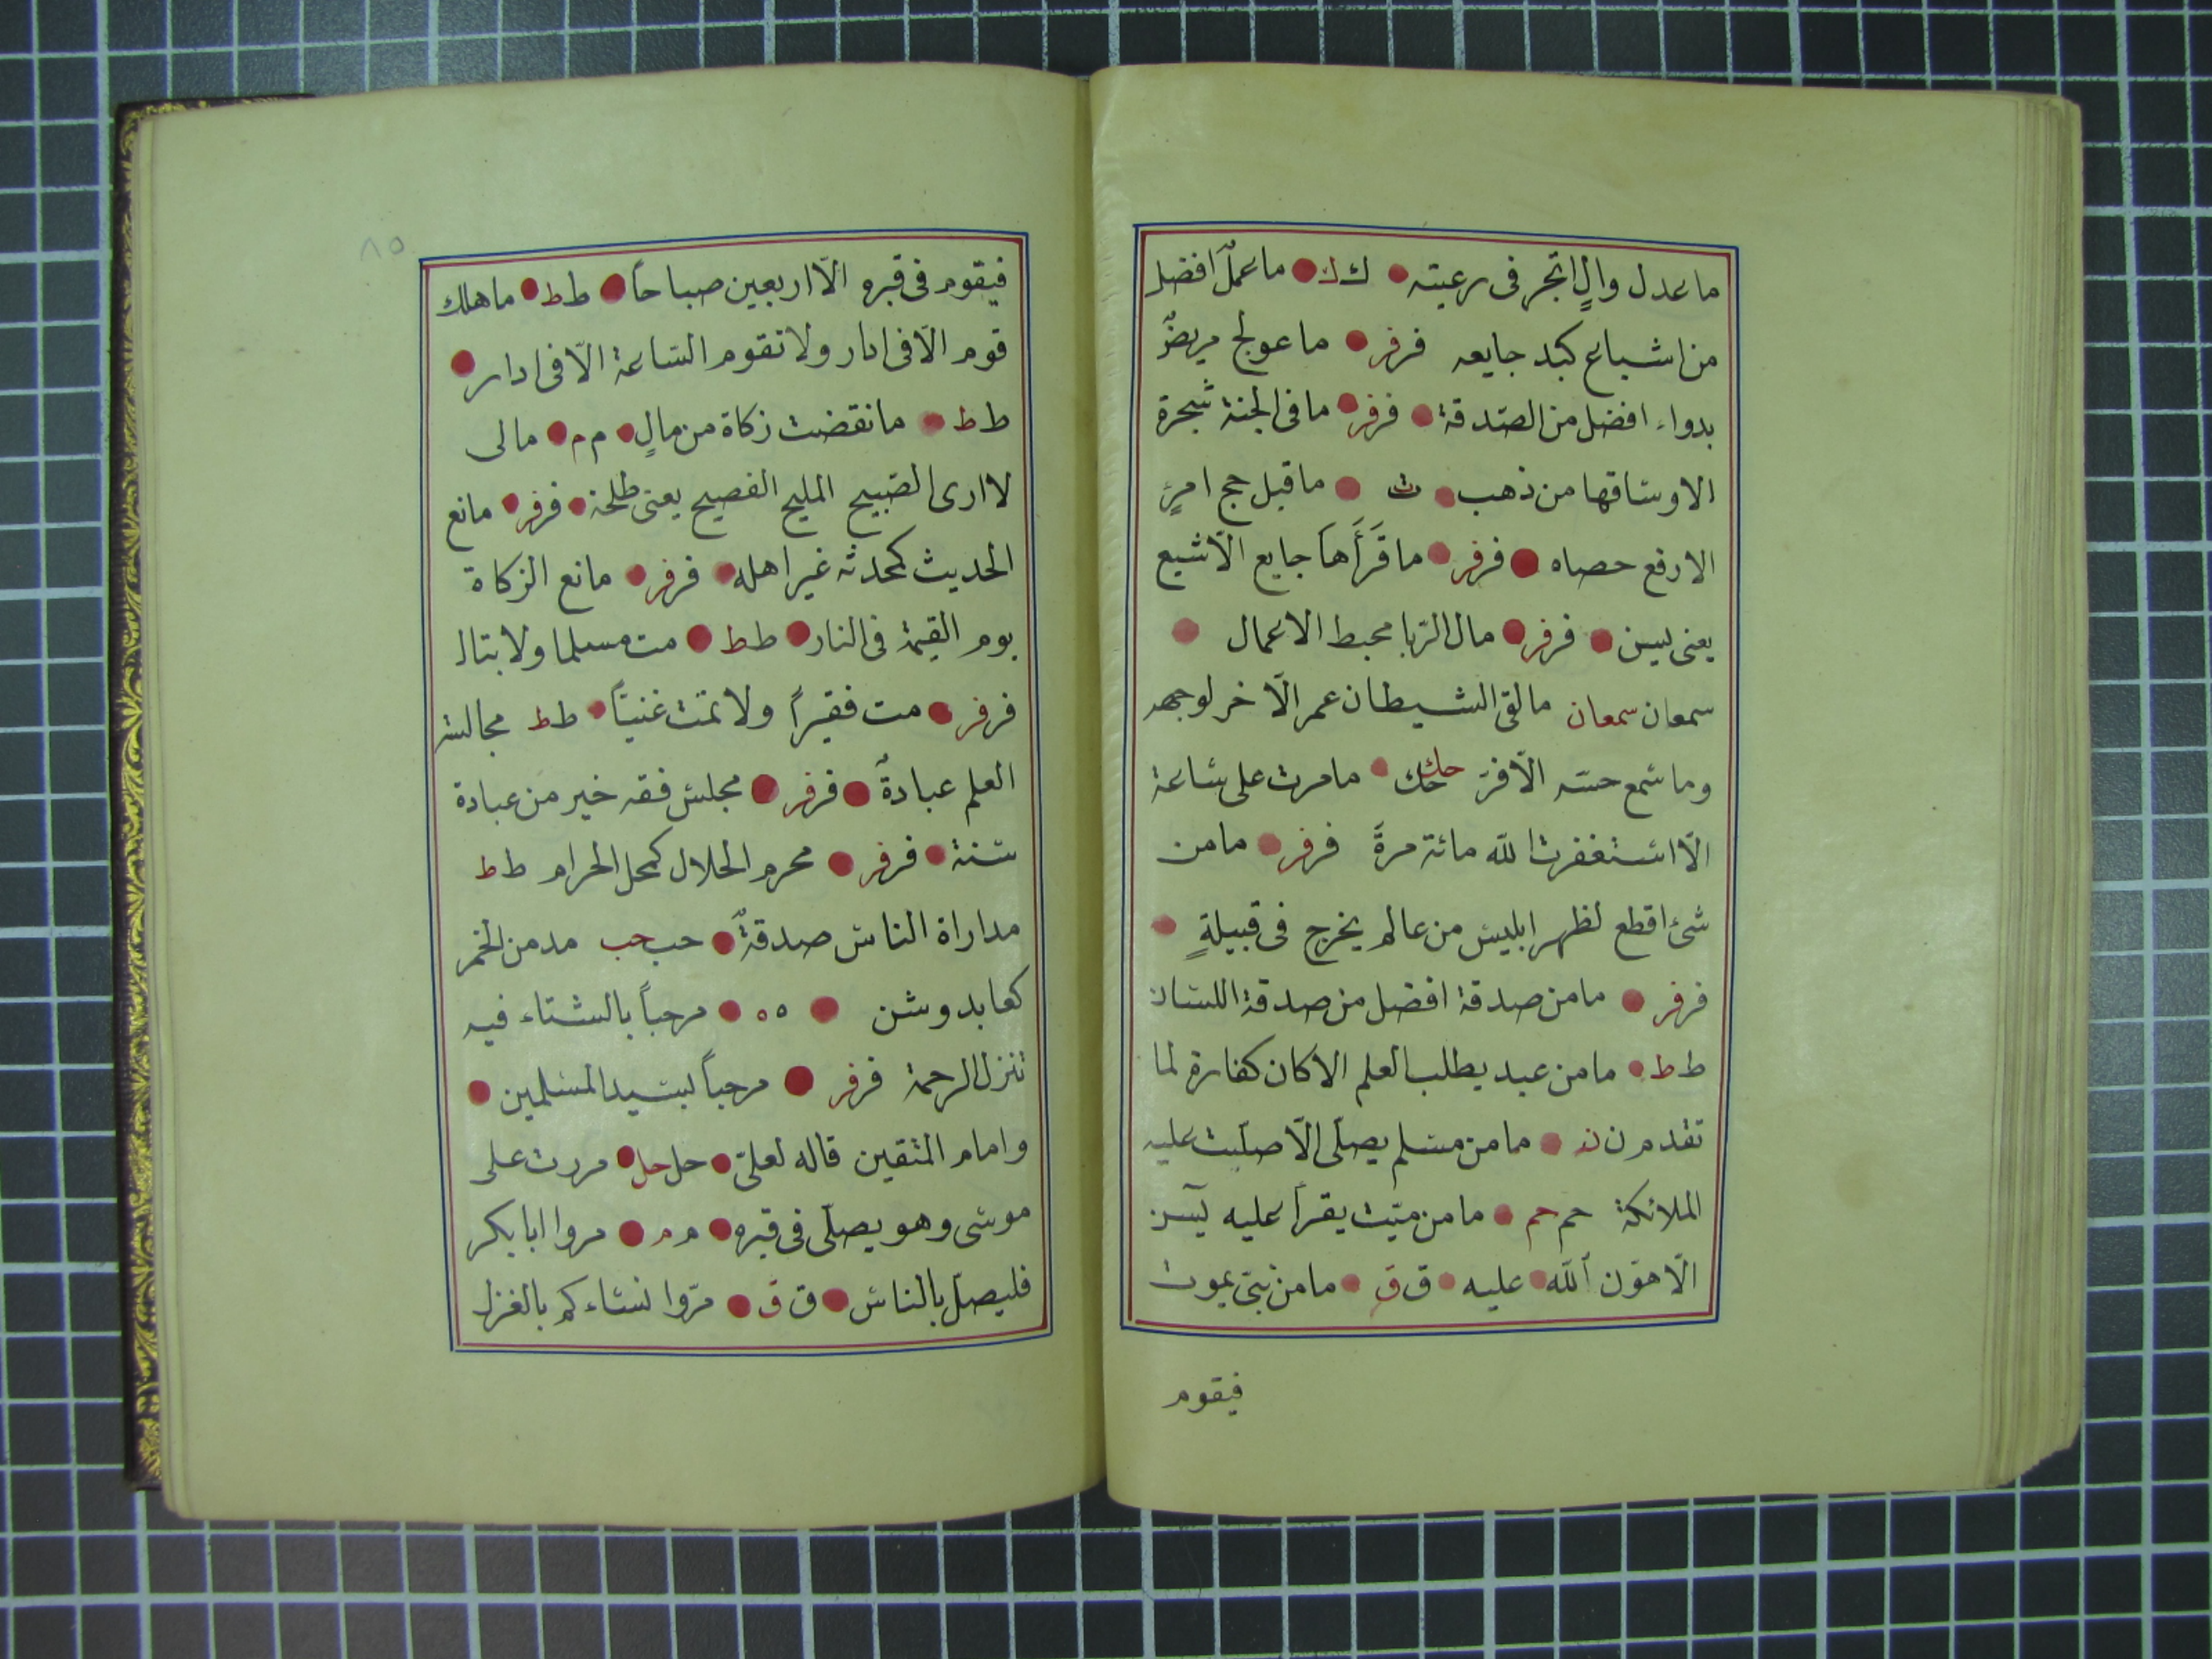 ما عدل والٍ اتجر فى رعيته ● ك ك ● ما عملٌ افضل
من اشباع كبد جايعه فر فر ● ما عولج مريضٌ
بدواء افضل من الصّدقة ● فر فر ● ما فى الجنة شجرة
الا وساقها من ذهب ● ت ● ما قبل حج امرئٍ
الا رفع حصاه ● فر فر ● ما قَرَأَهَا جايع الّا شبع
يعنى يسن ● فر فر ● مال الرّبا محبط الاعمال ●
سمعان سمعان ما لقى الشيطان عمر الّا خر لوجهه
وما سمع حسّه الّا فرّ حك حك ● ما مرت على ساعة
الّا استغفرت الله مائة مرةً فر فر ● ما من
شئ اقطع لظهر ابليس من عالم يخرج فى قبيلةٍ ●
فر فر ● ما من صدقة افضل من صدقة اللسان
ط ط ● ما من عبد يطلب العلم الا كان كفارة لما
تقدم ن ن ● ما من مسلم يصلّى الّا صلّيت عليه
الملائكة حم حم ● ما من ميّت يقرأ عليه يٓسن
الّا هوّن ألله ● عليه ● ق ق ● ما من نبىّ يموت
فيقوم
٨٥
فيقوم فى قبره الّا اربعين صباحاً ● ط ط ● ما هلك
قوم الّا فى اذار ولا تقوم السّاعة الّا فى اذار ●
ط ط ● ما نقضت زكاة من مالٍ ● م م ● مالى
لا ارى الصّبيح المليح الفصيح يعنى طلحة ● فر فر ● مانع
الحديث كمحدثه غير اهله ● فر فر ● مانع الزكاة
يوم القيمة فى النار ● ط ط ● مت مسلما ولا تبال
فر فر ● مت فقيراً ولا تمت غنيّاً ● ط ط مجالسة
العلم عبادةٌ ● فر فر ● مجلس فقه خير من عبادة
سنة ● فر فر ● محرم الحلال كمحل الحرام ط ط
مداراة الناس صدقةٌ ● حب حب مدمن الخمر
كعابد وشن ● ٥ ٥ ● مرحباً بالشتاء فيه
تنزل الرحمة فر فر ● مرحباً بسيد المسلمين ●
وامام المتقين قاله لعلىّ ● حل حل ● مررت على
موسى وهو يصلّى فى قبره ● م م ● مروا ابا بكر
فليصلّ بالناس ● ق ق ● مرّوا نساءكم بالغزل